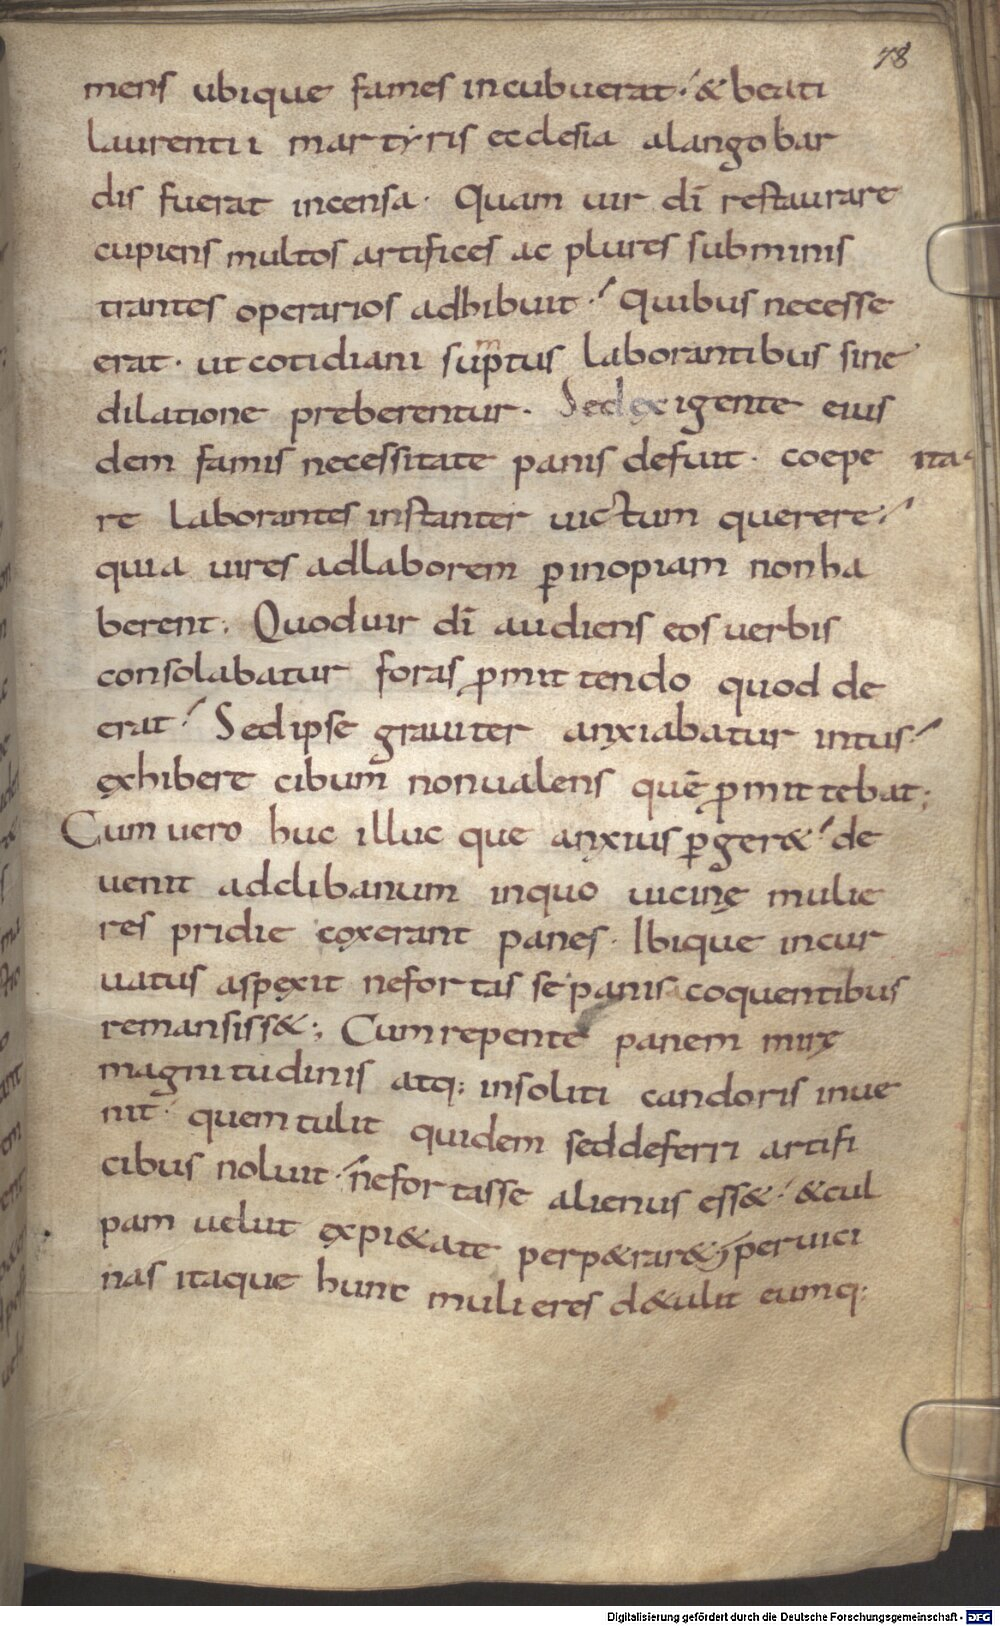 78
mens ubique fames incubuerat· & beati
laurentii martyris ecclesia alangobar
dis fuerat incensa· Quam uir dī restaurare
cupiens multos artifices ac plures subminis
trantes operarios adhibuit· Quibus necesse
erat· ut cotidiani sumptus laborantibus sine
dilatione preberentur· Sed exigente eius
dem famis necessitate panis defuit· coepe ita
re laborantes instanter uictum querere·
quia uires adlaborem ꝑinopiam nonha
berent; Quoduir dī audiens eos uerbis
consolabatur foras ꝓmittendo quod de
erat· Sedipse grauiter anxiabatur intus·
exhibere cibum nonualens quē ꝓmittebat;
Cum uero huc illuc que anxius ꝑger&· de
uenit adclibanum inquo uicinę mulie
res pridie coxerant panes· Ibique incur
uatus aspexit nefortasse panis coquentibus
remansiss&; Cumrepente panem mirę
magnitudinis atq; insoliti candoris inue
nit· quem tulit quidem seddeferri artifi
cibus noluit· nefortasse alienus ess&· &cul
pam uelut expi&ate perp&rar&; peruici
nas itaque hunc mulieres d&ulit eumq;
Digitalisierung gefördert durch die Deutsche Forschungsgemeinschaft - DFG